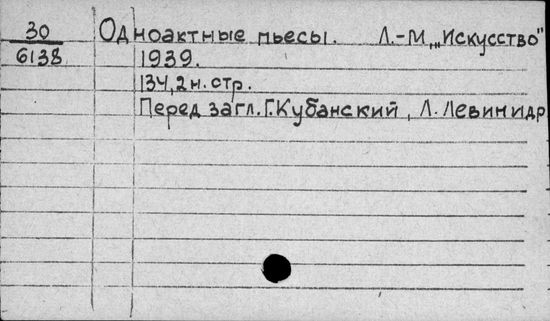 30 Одноактные пьесы. Л.-М.,„Искусство"
6138 1939.
134,2н.стр.
Перед загл.Г.Кубанский, Л.Левинидр